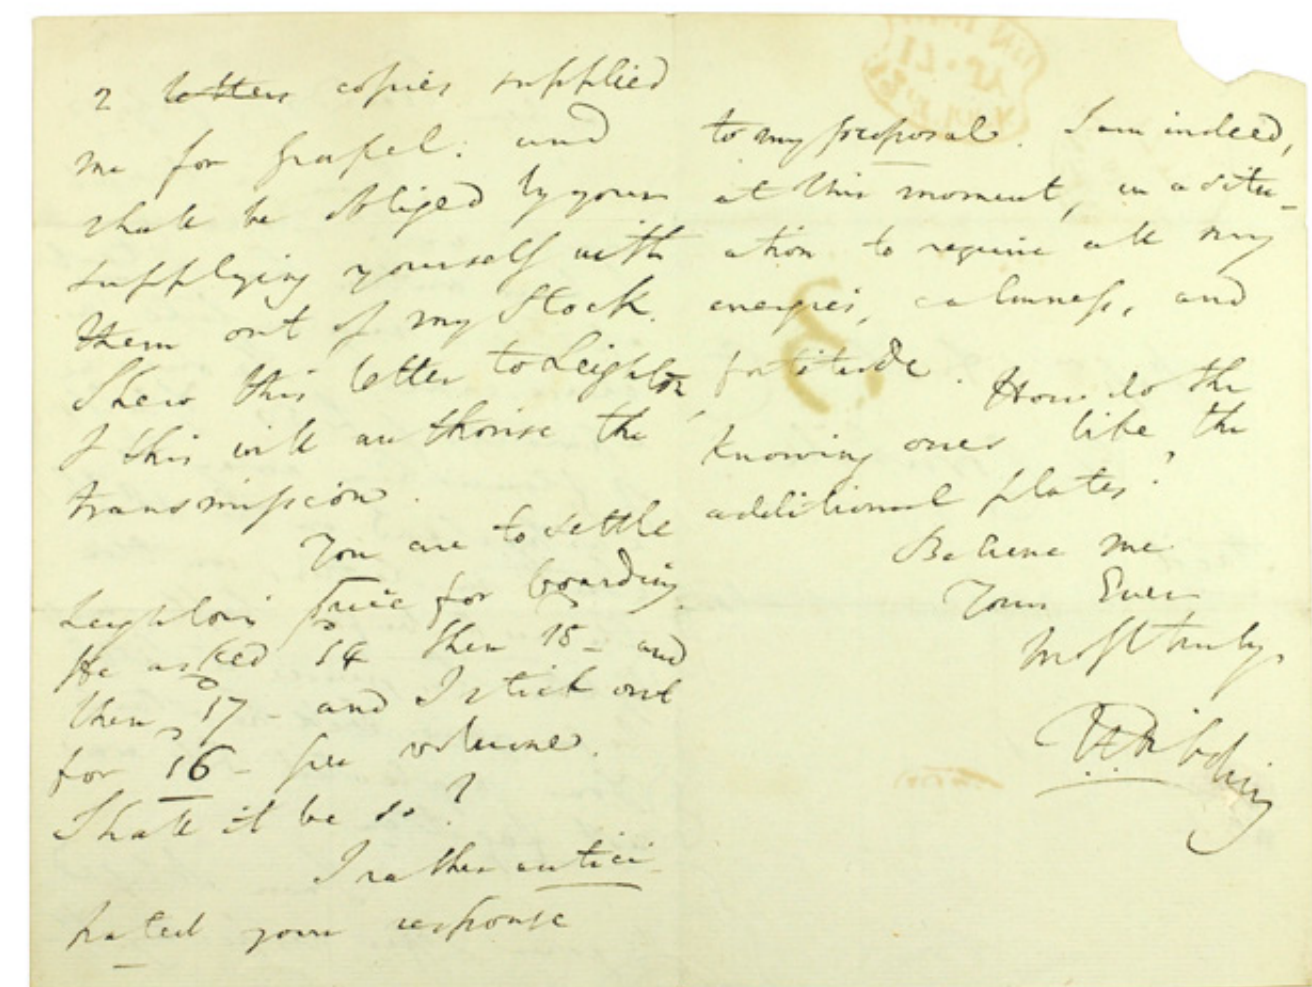 2 letters copies supplied
me for
shall be obliged by your
supplying yourself with
them out of my Stock.
Shew this letter to Leighton,
& this will authorise the
transmission.
You are to settle
Leighton's price for boarding.
He asked 14 then 18 - and
then 17 - and I stick out
for 16 - per volume.
Shall it be so?
I rather antici-
pated your response
to my proposal. I am indeed,
at this moment, in a situ-
ation to require all my
energies, calmness, and
fortitude. How do the
knowing ones like the
additional plates?
Believe me
Yours Ever
Most truly,
TFDibdin